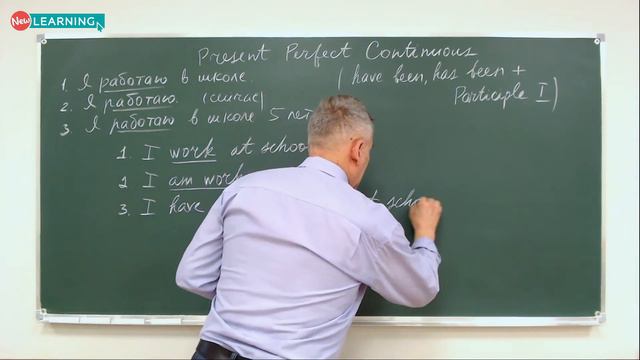 New LEARNING
Present Perfect Contenuous
1. Я работаю в школе.
(have been, has been +
Participle I)
2. Я работаю. (сейчас)
3. Я работаю в школе 5 лет
1. I work at schoo
2 I am work
3. I have
scho